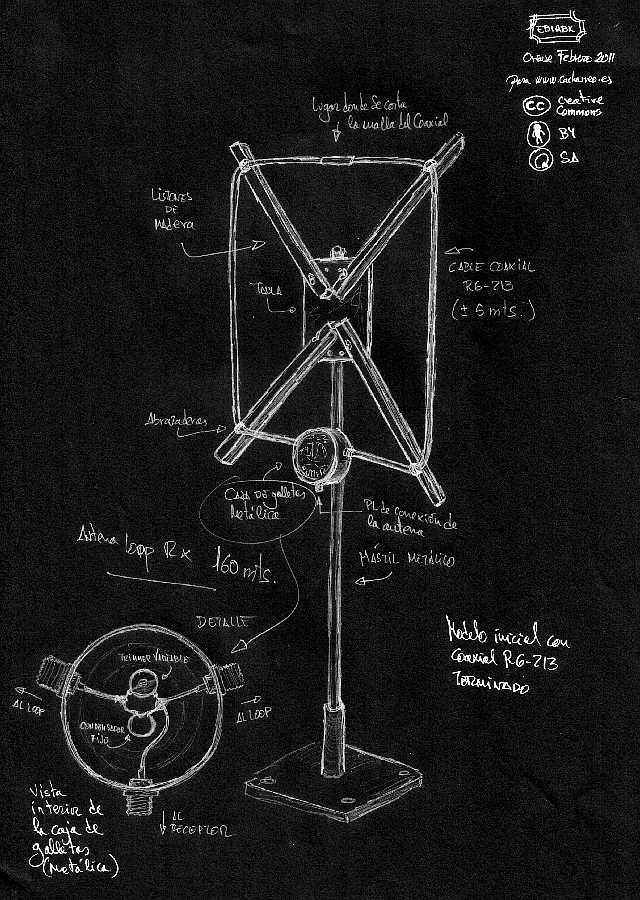 Orense Febrero 2011
Para www.cacharreo.es
cc Creative
Commons
BY
SA
Lugar donde Se corta
la malla del Coaxial
LISTONES
DE
MADERA
TABLA
CABLE COAXIAL
RG-213
(± 5 mts.)
Abrazaderas
CAJA DE galletas
Metálica
PL de conexión de
la antena
MÁSTIL METÁLICO
Antena Loop Rx 160 mts.
DETALLE
TRIMMER VARIABLE
CONDENSADOR
FIJO
AL LOOP
AL LOOP
AL
RECEPTOR
Vista
interior de
la caja de
galletas
(Metálica)
Modelo inicial con
Coaxial RG-213
TERMINADO